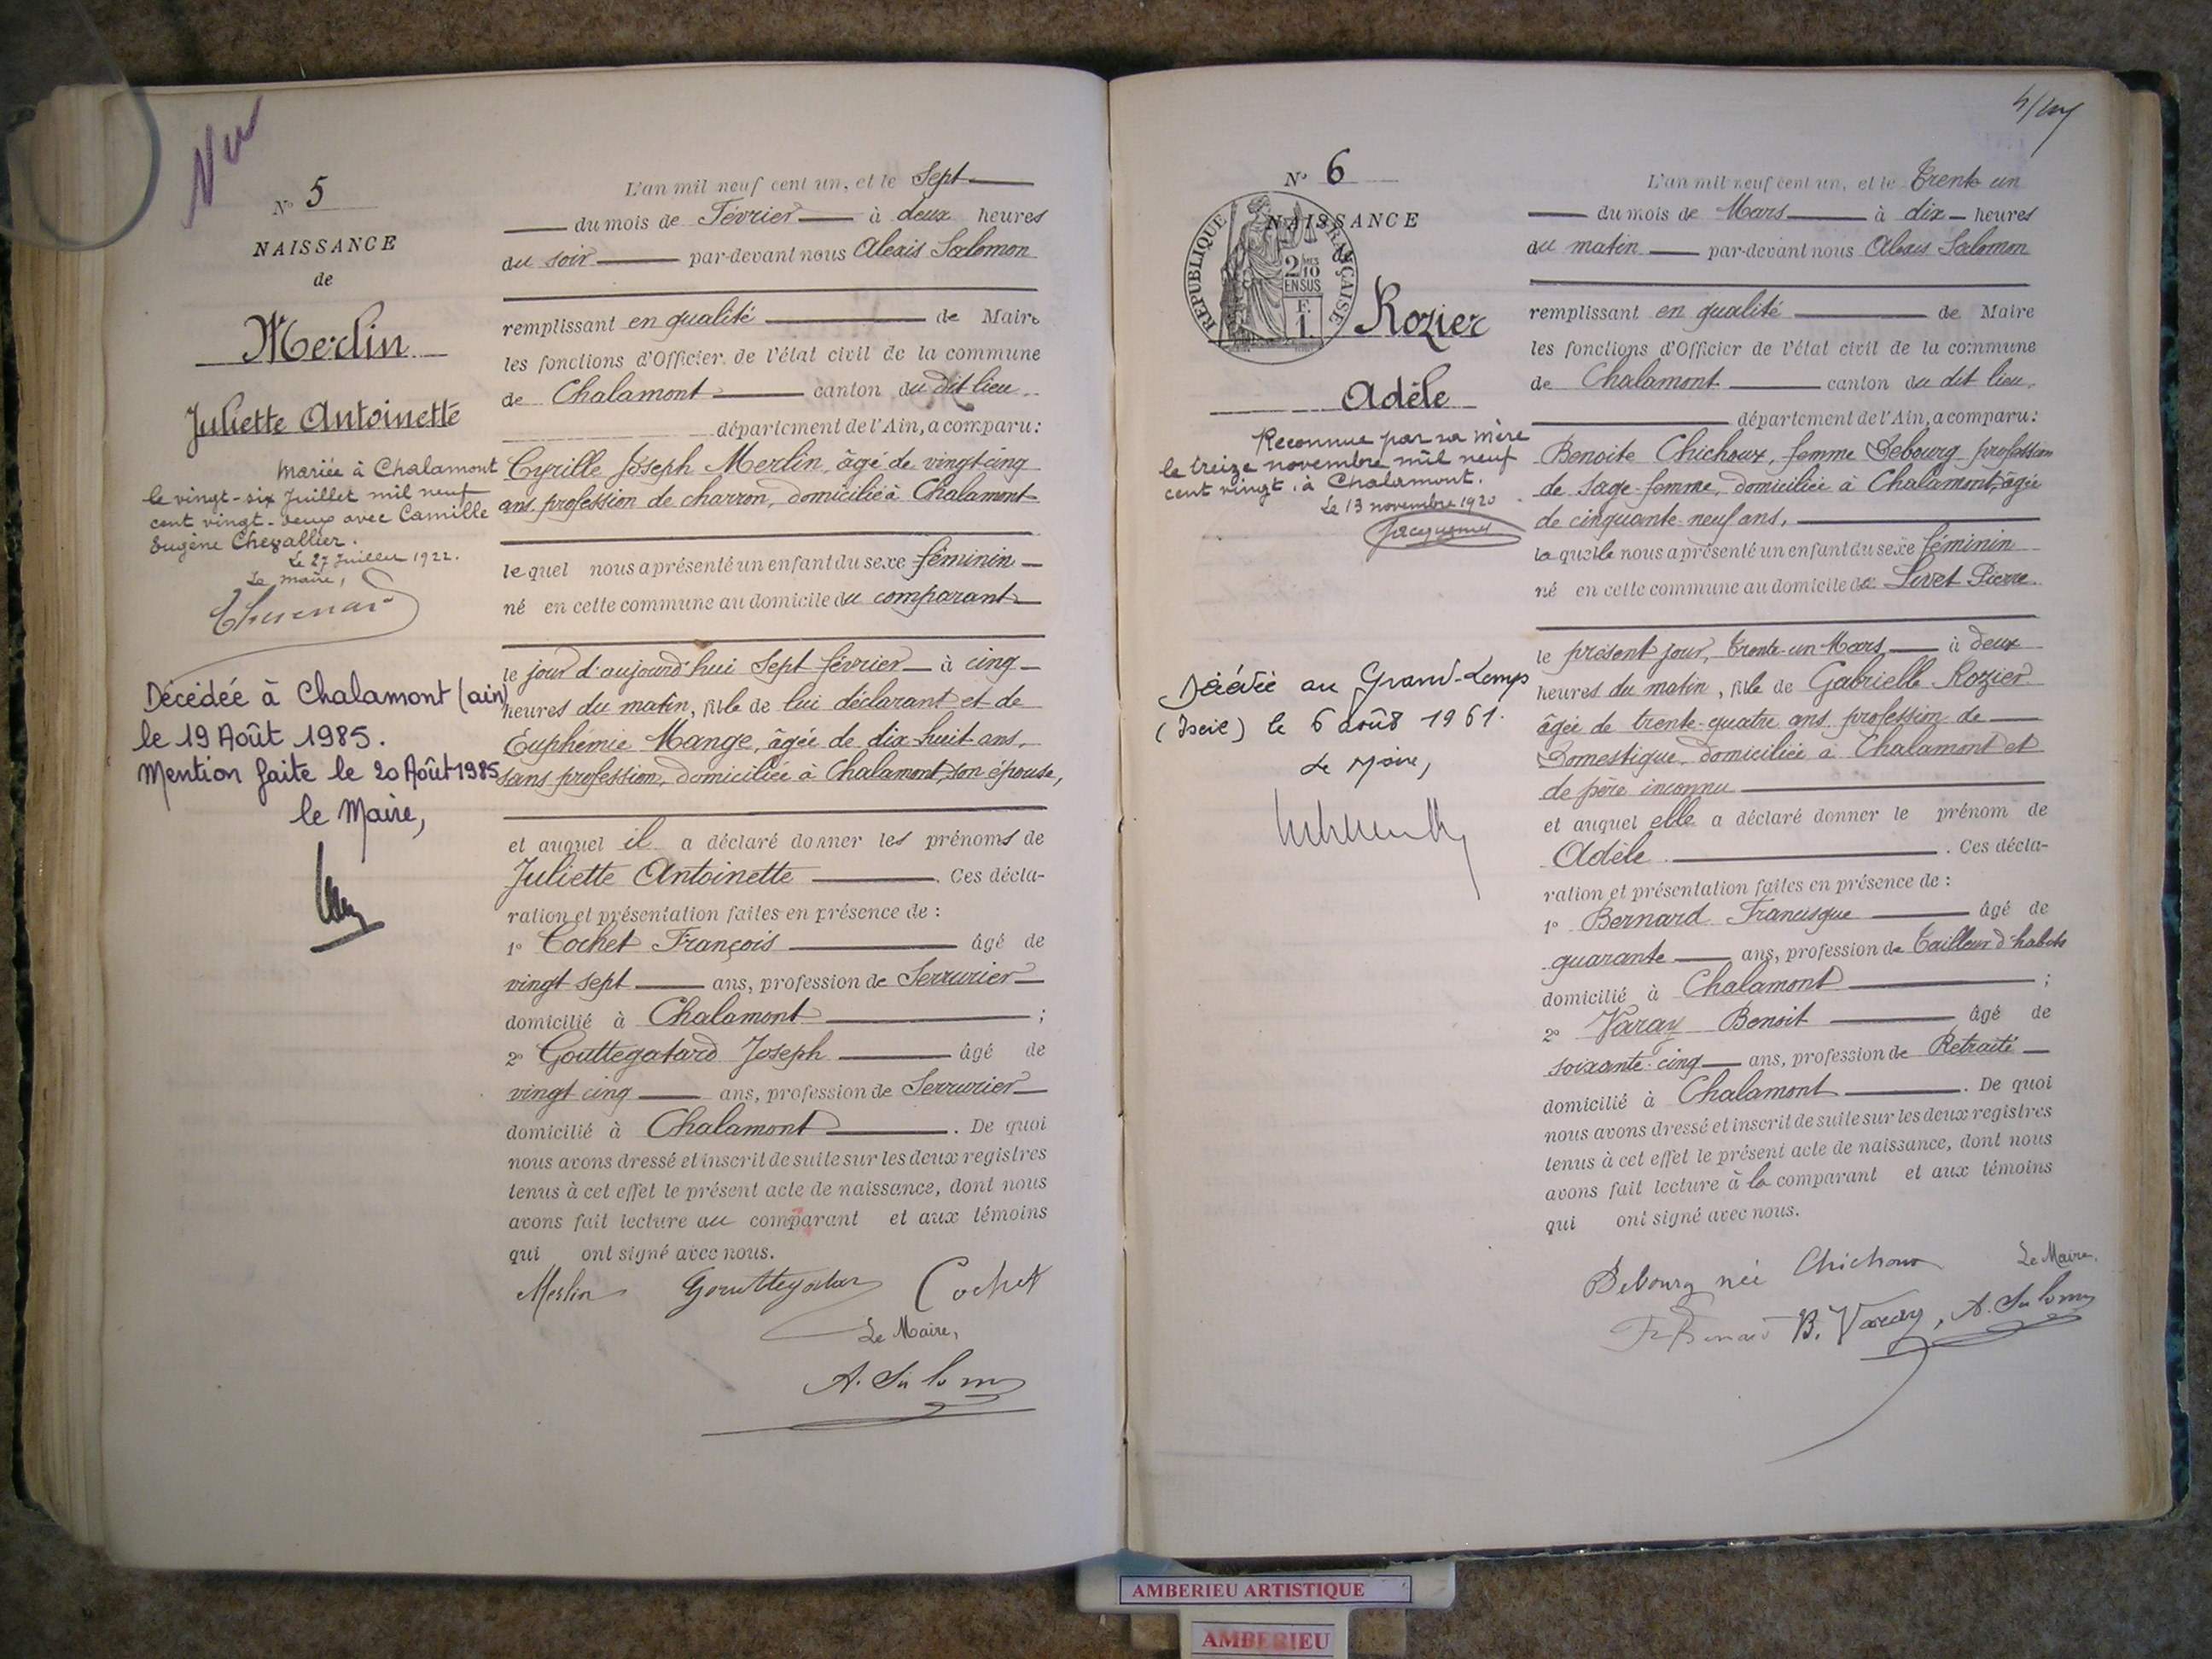 Vu
N° 5
NAISSANCE
de
Merlin
Juliette Antoinette
Mariée à Chalamont
le vingt-six Juillet mil neuf
cent vingt-deux avec Camille
Eugène Chevallier.
Le 27 Juillet 1922.
Le maire,
Décédée à Chalamont (ain)
le 19 Août 1985.
Mention faite le 20 Août 1985
le Maire,
L'an mil neuf cent un, et le Sept
du mois de Février à deux heures
du soir par-devant nous Alexis Salomon
remplissant en qualité de Maire
les fonctions d'Officier de l'état civil de la commune
de Chalamont canton du dit lieu
département de l'Ain, a comparu:
Cyrille Joseph Merlin, âgé de vingt-cinq
ans, profession de charron, domicilié à Chalamont
lequel nous a présenté un enfant du sexe féminin
né en cette commune au domicile du comparant
le jour d'aujourd'hui Sept février à cinq
heures du matin, fille de lui déclarant et de
Euphémie Mange, âgée de dix huit ans,
sans profession, domiciliée à Chalamont, son épouse,
et auquel il a déclaré donner les prénoms de
Juliette Antoinette. Ces décla-
ration et présentation faites en présence de :
1° Cochet François âgé de
vingt sept ans, profession de Serrurier
domicilié à Chalamont ;
2° Gouttegatard Joseph âgé de
vingt cinq ans, profession de Serrurier
domicilié à Chalamont. De quoi
nous avons dressé et inscrit de suite sur les deux registres
tenus à cet effet le présent acte de naissance, dont nous
avons fait lecture au comparant et aux témoins
qui ont signé avec nous.
Merlin Gouttegatar Cochet
Le Maire,
A. Salomon
N° 6
NAISSANCE
de
RÉPUBLIQUE FRANÇAISE
2/10
EN SUS
F.
1.
Rozier
Adèle
Reconnue par sa mère
le treize novembre mil neuf
cent vingt, à Chalamont.
Le 13 novembre 1920
Décédée au Grand-Lemps
(Isère) le 6 août 1961.
Le Maire,
L'an mil neuf cent un, et le Trente un
du mois de Mars à dix heures
du matin par-devant nous Alexis Salomon
remplissant en qualité de Maire
les fonctions d'Officier de l'état civil de la commune
de Chalamont canton du dit lieu
département de l'Ain, a comparu:
Benoite Chichoux, femme Debourg profession
de sage-femme, domiciliée à Chalamont, âgée
de cinquante-neuf ans,
laquelle nous a présenté un enfant du sexe féminin
né en cette commune au domicile de Livet Pierre
le présent jour, trente-un Mars à deux
heures du matin, fille de Gabrielle Rozier
âgée de trente-quatre ans, profession de
Domestique, domiciliée à Chalamont et
de père inconnu
et auquel elle a déclaré donner le prénom de
Adèle. Ces décla-
ration et présentation faites en présence de :
1° Bernard Francisque âgé de
quarante ans, profession de Tailleur d'habits
domicilié à Chalamont ;
2° Varay Benoit âgé de
soixante-cinq ans, profession de Retraité
domicilié à Chalamont. De quoi
nous avons dressé et inscrit de suite sur les deux registres
tenus à cet effet le présent acte de naissance, dont nous
avons fait lecture à la comparant et aux témoins
qui ont signé avec nous.
Debourg née Chichoux Le Maire.
Fr Bernard B. Varay, A. Salomon
AMBERIEU ARTISTIQUE
AMBERIEU